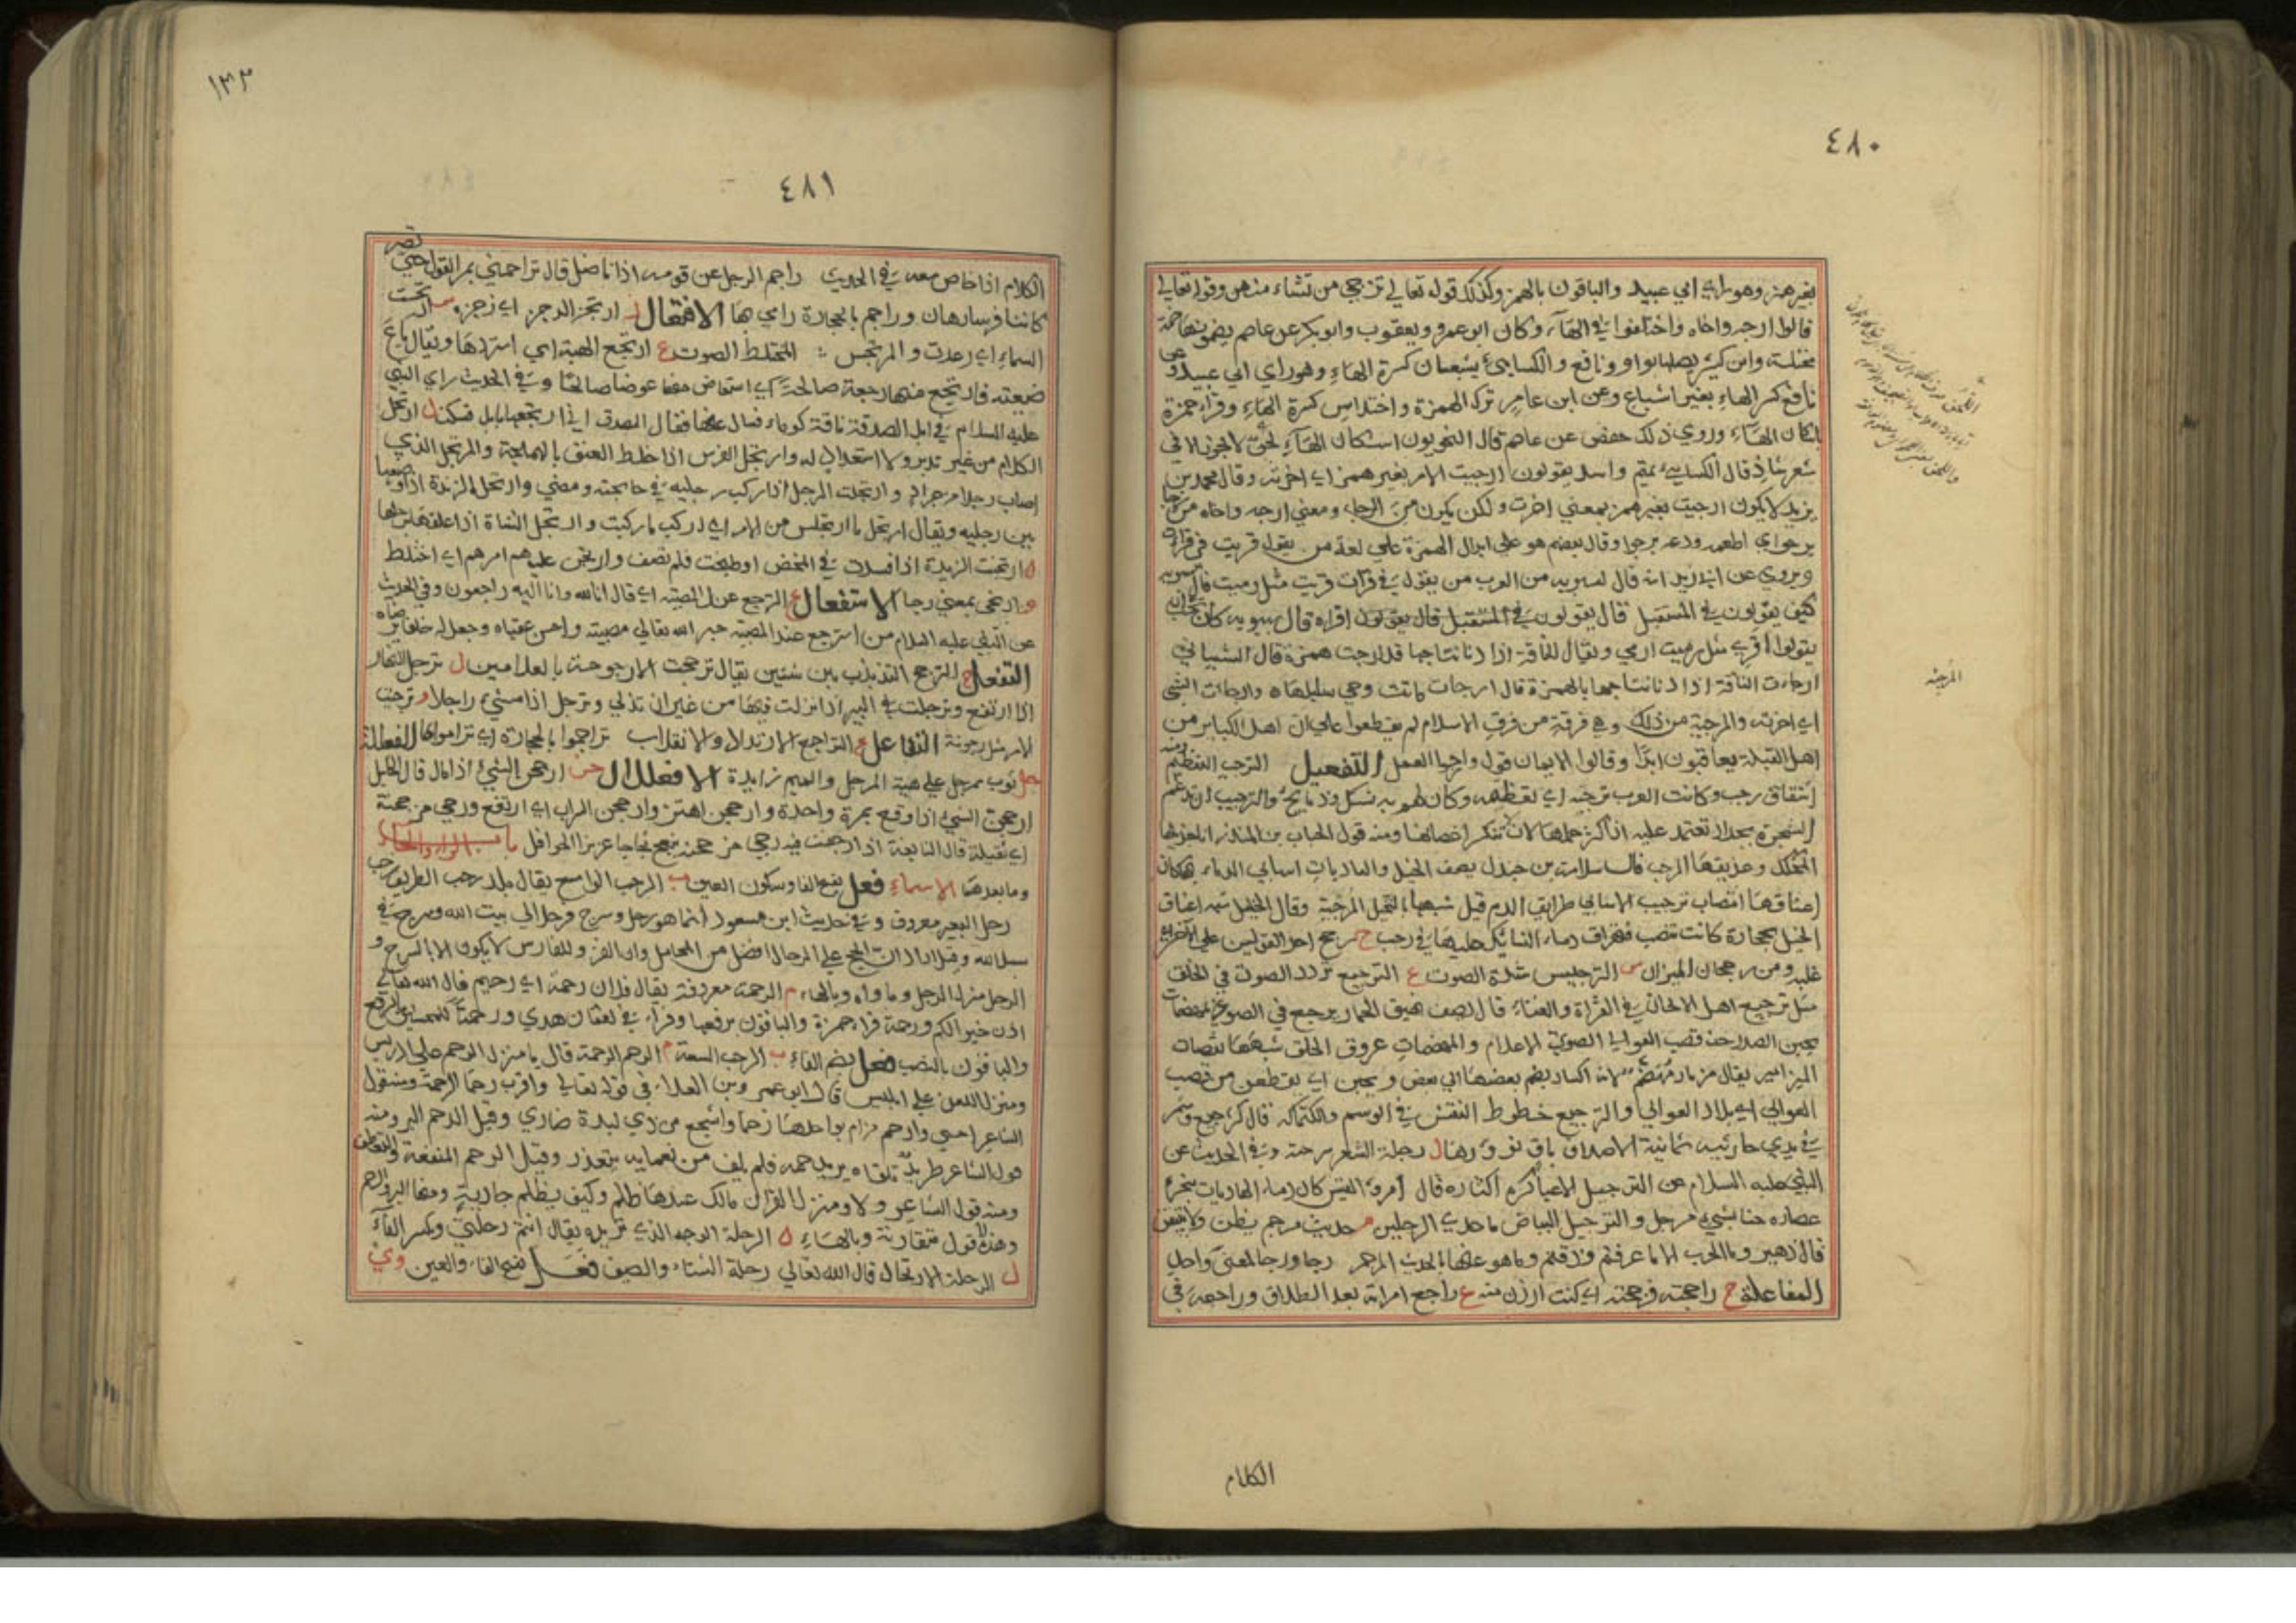 ٤٨٠
بغير همز وهو راي ابي عبيد والباقون بالهمز وكذلك قوله تعالي ترجي من تشاء منهن وقوله تعالي
قالوا ارجه واخاه واختلفوا في الهآء وكان ابو عمرو ويعقوب وابو بكر عن عاصم يضمونها
مختلسة وابن كثير يصلها بواو ونافع والكسايئ يشبعان كسرة الهاء وهو راي ابي عبيد وعن
نافع كسر الهاء بغير اشباع وعن ابن عامر ترك الهمزة واختلاس كسرة الهاء وقراء حمزة
باسكان الهاء وروي ذلك حفص عن عاصم قال النحويون اسكان الهآء لحن لا يجوز الا في
شعر شاذ قال الكسايي تميم واسد يقولون ارجيت الامر بغير همز اي اخرته وقال محمد بن
يزيد لا يكون ارجيت بغير همز بمعني اخرت ولكن يكون من الرجا ومعني ارجه واخاه من رجا
يرجو اي اطعمه ودعه يرجوا وقال بعضهم هو علي ابدال الهمزة علي لغة من يقول قريت في قرات
ويروي عن ابي زيد انه قال لسيبويه من العرب من يقول في قرات قريت مثل رميت قال سيبويه
كيف يقولون في المستقبل قال يقولون في المستقبل قال يقولون اقراه قال سيبويه كان يجب ان
يقولوا اقري مثل رميت ارمي ويقال للناقة اذا دنا نتاجها قد ارجت همزة قال الشيباني
ارجاءت الناقة اذا دنا نتاجها بالهمزة قال ارجات
اي اخرته والمرجية من ذلك وهي فرقة من فرق الاسلام لم يقطعوا علي ان اهل الكباير من
اهل القبلة يعاقبون ابدًا وقالوا الايمان قول وارجوا العمل التفعيل الترجيب التعظيم ومنه
اشتقاق رجب وكانت العرب ترجبه اي تعظمه وكان لهم به نسك وذبايح والترجيب ان تدعم
الشجرة بجدار تعتمد عليه اذا كثر حملها لان لا تنكسر اغصانها ومنه قول الحباب بن المنذر انا جذيلها
المحكك وعذيقها المرجب قال سلامة بن جندل يصف الخيل والعاديات اسابي الدماء بها كان
اعناقها انصاب ترجيب الاسابي طرايق الدم قيل شبهها بالنخل المُرجبة وقال الخليل شبه اعناق
الخيل بحجارة كانت تنصب فتهراق دماء النسايك عليها في رجب ح رجح احد القولين علي الاخر اي
غلبه ومن رجحان الميزان س الترجيس شدة الصوت ع الترجيع تردد الصوت في الحلق
مثل ترجيع اهل الالحان في القراة والغناء قال يصف نهيق الحمار يرجع في الصوي
يجبن الصلا حذ قصب العوالي الصوي الاعلام والمهضمات عروق الحلق شبهها بقصبات
المزامير يقال مزمار مُهضّم لانه اكسار يضم بعضها الي بعض ويجبن اي يقطعن من قصب
العوالي اي بلاد العوالي والترجيع خطوط النقش في الوسم والكتابة قال كرجيع وشم
في يدي حارثية يمانية الاصداف باق نوورها ل رجلة الشعر سرحته وفي الحديث عن
النبي عليه السلام عن الترجيل الا غبا كره اكثاره قال امرؤ القيس كان دماء الهاديات بنحره
عصاره حنا بشيب مرجل والترجيل البياض ما حدي الرجلين م حديث مرجم يظن ولا يتيقن
قال زهير وما الحرب الا ما عرفتم وذقتم وما هو عنها بالحديث المرجم رجا ورجا المعنى واحد
المفاعلة ح راجحته فرجحته اي كنت ارزن منه ع راجع امراته بعد الطلاق وراجعه في
المرجئه
الكلام
١٣٣
٤٨١
الكلام اذا خاض معه في الحديث راجم الرجل عن قومه اذا ناضل قال تراجمني بمر القول حتى نصير
كاننا فرسا رهان وراجم بالحجارة رامي بها الافتعال ز ارتجز الرجز اي زجزه س ارتجست
السماء اي رعدت والمرتجس المختلط الصوت ع ارتجع الهبة اي استردها ويقال باع
ضيعته فارتجع منها رجعة صالحة اي استعاض منها عوضا صالحا وفي الحديث راي النبي
عليه السلام في ابل الصدقة ناقة كوماء فسال عنها فقال المصدق اني ارتجعتها بابل فسكت ل ارتجل
الكلام من غير تدبر ولا استعداد له وارتجل الفرس اذا خلط العنق بالهملجة والمرتجل الذي
اصاب رجلا من جراد وارتجلت الرجل اذا ركب رجليه في حاجته ومضي وارتجل الزندة اذا وضعها
بين رجليه ويقال ارتجل ما ارتجلت من الامر اي اركب ما ركبت وارتجل الشاة اذا علقها برجلها
ن ارتجنت الزبدة اذا فسدت في المخض او طبخت فلم تصف وارتجن عليهم امرهم اي اختلط
و ارتجى بمعني رجا الاستفعال ع استرجع عند المصيبة اي قال انا لله وانا اليه راجعون وفي الحديث
عن النبي عليه السلام من استرجع عند المصيبة جبر الله تعالي مصيبته واحسن عقباه وجعل له خلفا يرضاه
التفعل ح الترجح التذبذب بين شيئين يقال ترجحت الارجوحة بالغلامين ل ترجل النهار
اذا ارتفع وترجلت في البير اذا نزلت فيها من غير ان تدلي وترجل اذا مشي راجلا و ترجيت
الامر مثل رجوته التفاعل ع التراجع الارتداد والانقلاب تراجموا بالحجارة اي تراموا بها الفعللة
جل ثوب ممرجل علي هية المرجل والميم زايدة الافعلال جن ارجحن الشيئ اذا مال قال الخليل
ارجحن الشيء اذا وقع بمرة واحدة وارجحن اهتز وارجحن السراب اي ارتفع ورحي مرجحنة
اي ثقيلة قال النابغة اذا رجفت فيه رحي مرجحنة تبعج ثجاجا غزير الحوافل باب الراء والحاء
وما بعدهما الاسماء فعل بفتح الفا وسكون العين ب الرحب الواسع يقال بلد رحب الطريق رحب
رحل البعير معروف وفي حديث ابن مسعود انما هو رحل وسرج فرحل الي بيت الله وسرج في
سبيل الله وقيل اراد ان الحج علي الرحال افضل من المحامل وان الغزو للفارس لا يكون الا بالسرج و
الرحل منزل الرجل وماواه وبالهاء م الرحمة معروفة يقال فلان رحمة اي رحيم قال الله تعالي
اذن خير لكم ورحمة قراء حمزة والباقون برفعها وقراء في لقمان هدي ورحمة للمحسنين بالرفع
والباقون بالنصب فعل بضم الفاء ب الرحب السعة م الرحم الرحمة قال يا منزل الرحم علي ادريس
ومنزل اللعن علي ابليس قال ابو عمرو بن العلاء في قوله تعالي واقرب رحما الرحمة ومنه قول
وقيل الرحم البر ومنه
قول الشاعر طريد تلافاه يزيد برحمة فلم يلف من نعمايه يتعذر وقيل الرحم المنفعة والتعطف
ومنه قول الشاعر ولا ومنزل الفرقان مالك عندها ظلم وكيف بظلم جارية ومنها البر والرحم
وهذه الاقوال متقاربة وبالهاء ل الرحلة الوجه الذي تريده يقال انتم رحلتي وبكسر الفآء
ل الرحلة الارتحال قال الله تعالي رحلة الشتاء والصيف فعل بفتح الفاء والعين وي